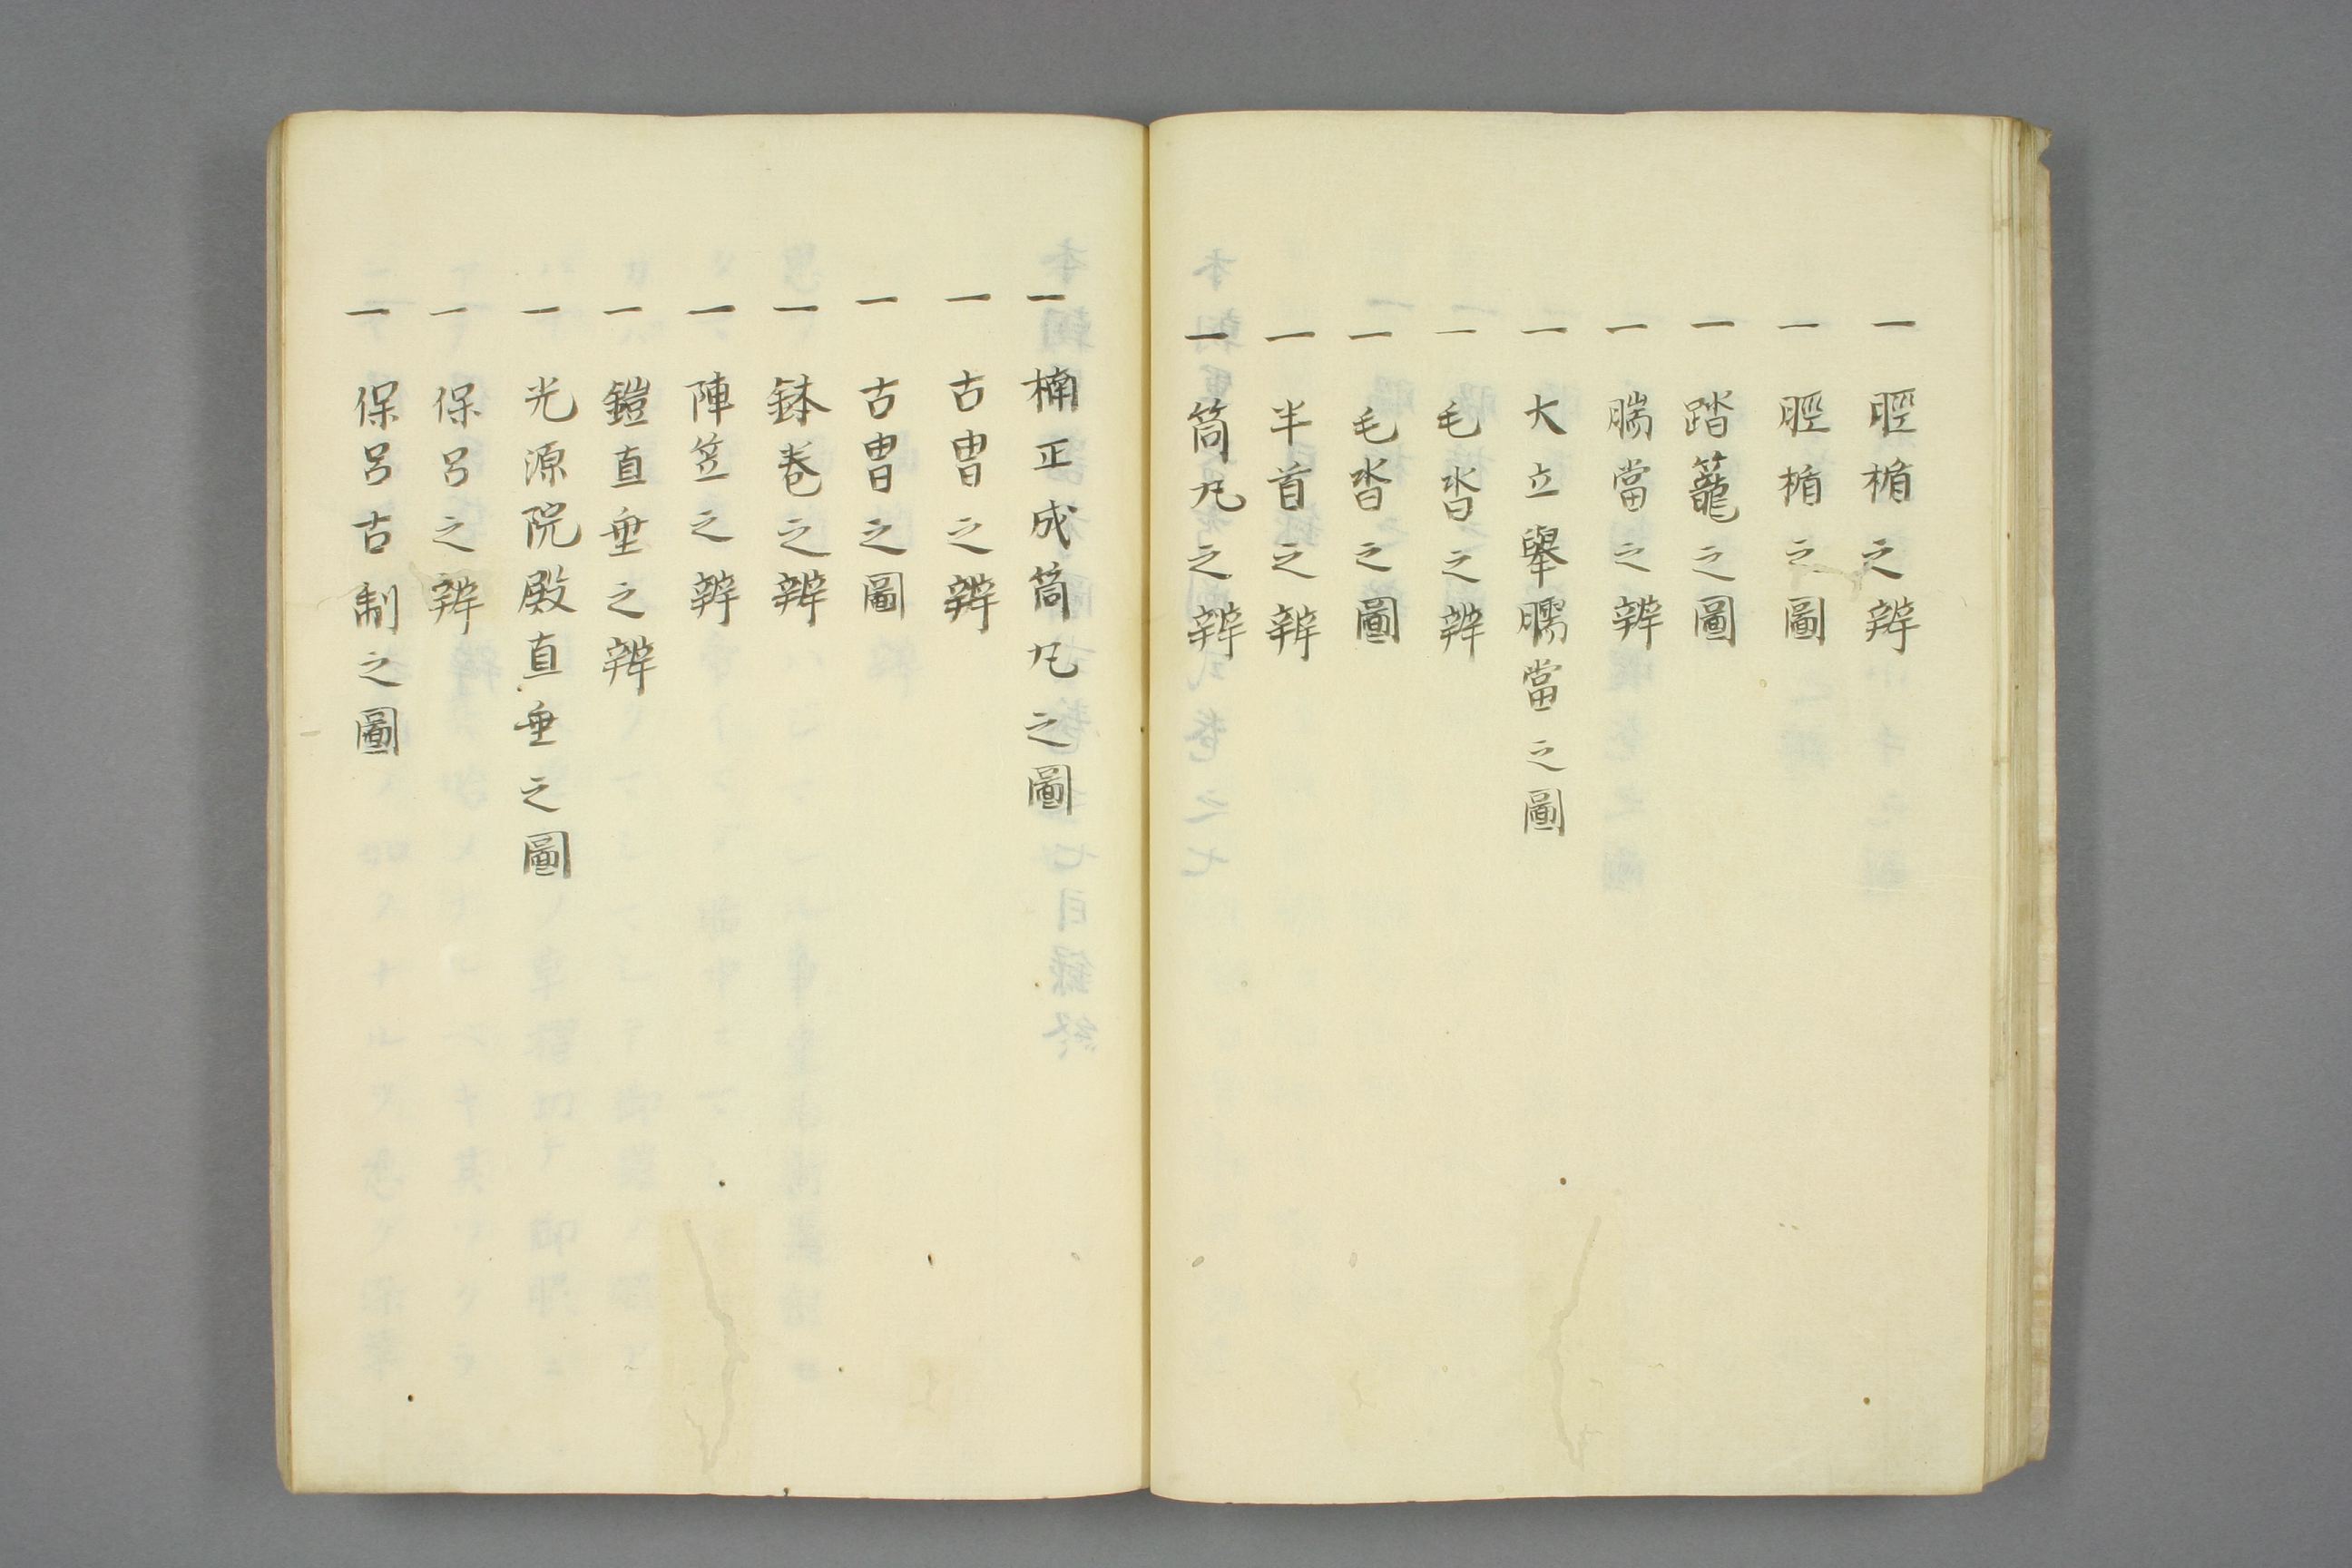 一 脛楯之辨
一 脛楯之圖
一 踏籠之圖
一 腨當之辨
一 大立擧臑當之圖
一 毛沓之辨
一 毛沓之圖
一 半首之辨
一 筒丸之辨
一 楠正成筒丸之圖
一 古冑之辨
一 古冑之圖
一 鉢巻之辨
一 陣笠之辨
一 鎧直垂之辨
一 光源院殿直垂之圖
一 保呂之辨
一 保呂古制之圖